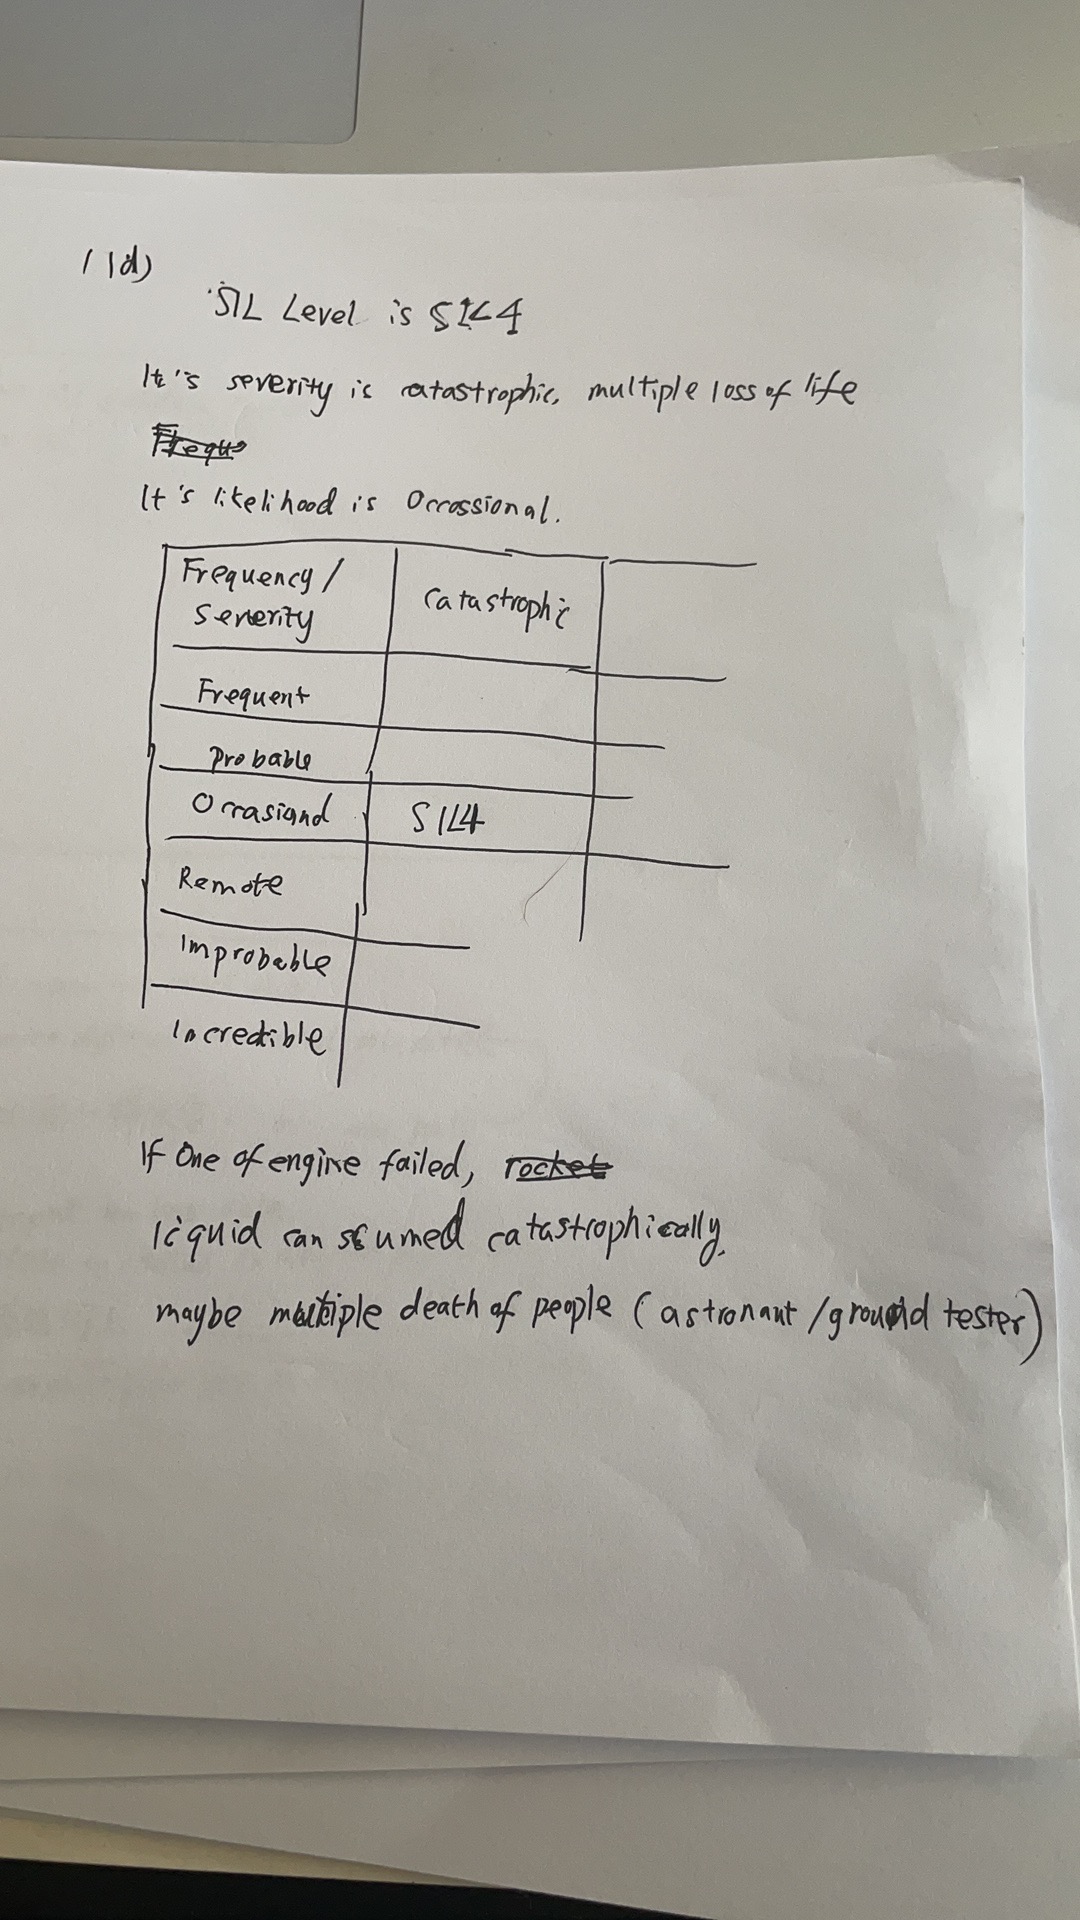 11d)
SIL Level is SIL4
It's severity is catastrophic, multiple loss of life
Frequ
It's likelihood is Occassional.
Frequency / Severity
Catastrophic
Frequent
Probable
Occasiond
SIL4
Remote
Improbable
Incredible
If One of engine failed, rocket
liquid can
catastrophically,
maybe multiple death of people (astronaut / ground tester)